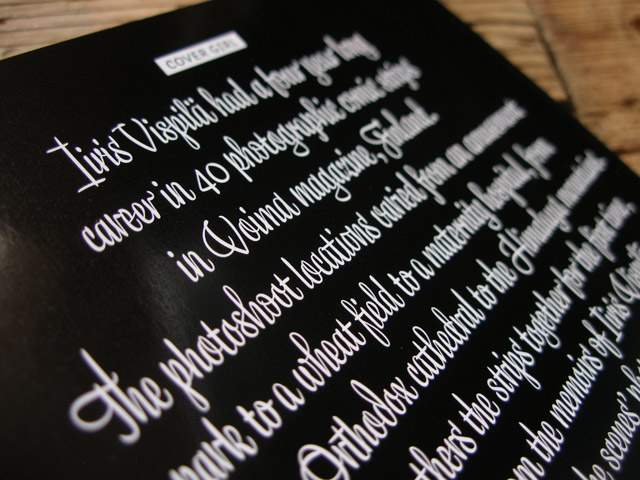 COVER GIRL
Iiris Vispilä had a four year long
career in 40 photographic comic strips
in Voima magazine, Finland.
The photoshoot locations varied from an amusement
park to a wheat field to a maternity hospital, from
Orthodox cathedral to the
thers the strips together for the first time
om the memoirs of Iiris
he scenes'